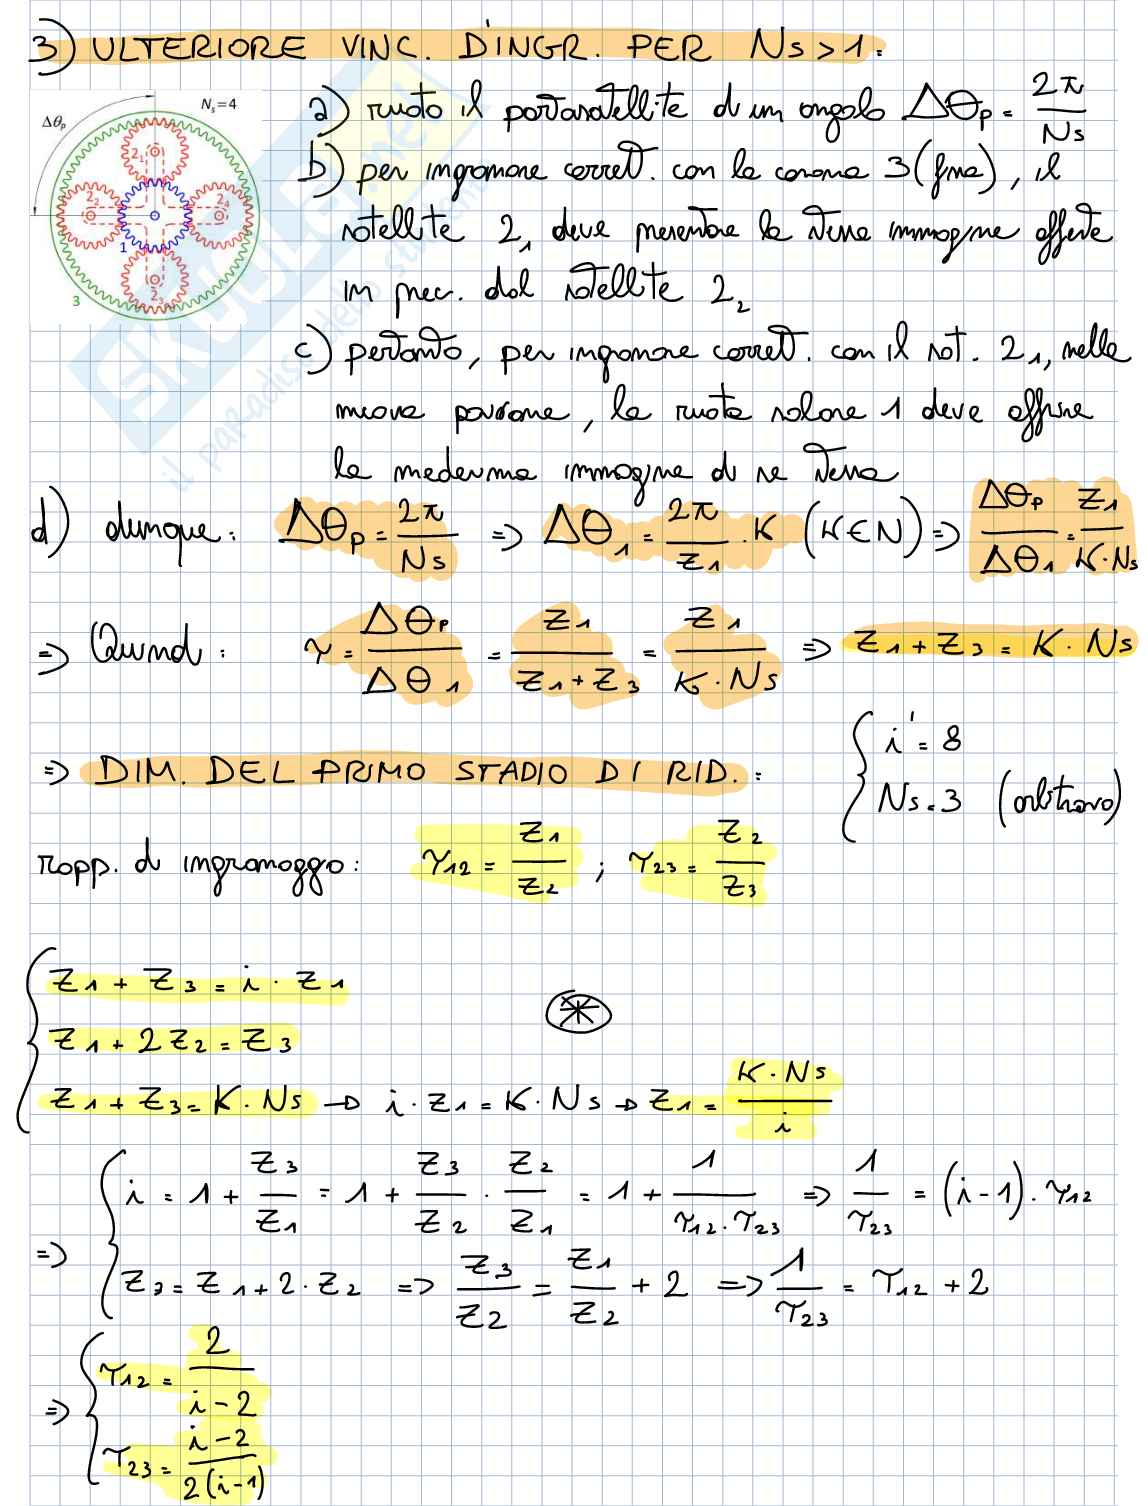 3) ULTERIORE VINC. D'INGR. PER Ns > 1 :
Δθp
Ns=4
2₁
2₂
2₄
1
2₃
3
a) ruoto il portasatellite di un angolo Δθp = 2π/Ns
b) per ingranare corrett. con la corona 3 (fissa), il
satellite 2₁ deve presentare la stessa immagine offerta
in prec. dal satellite 2₂
c) pertanto, per ingranare corrett. con il sat. 2₁, nella
nuova posizione, la ruota solare 1 deve offrire
la medesima immagine di se stessa
d) dunque: Δθp = 2π/Ns => Δθ₁ = 2π/Z₁ · K (K∈N) => Δθp/Δθ₁ = Z₁/(K·Ns)
=> Quindi: τ = Δθp/Δθ₁ = Z₁/(Z₁+Z₃) = Z₁/(K·Ns) => Z₁ + Z₃ = K · Ns
=> DIM. DEL PRIMO STADIO DI RID. :
{ i' = 8
Ns = 3 (arbitrario)
rapp. di ingranaggio: τ₁₂ = Z₁/Z₂ ; τ₂₃ = Z₂/Z₃
{ Z₁ + Z₃ = i · Z₁
Z₁ + 2Z₂ = Z₃
⊛
Z₁ + Z₃ = K · Ns → i · Z₁ = K · Ns → Z₁ = K·Ns/i
=> { i = 1 + Z₃/Z₁ = 1 + Z₃/Z₂ · Z₂/Z₁ = 1 + 1/(τ₁₂·τ₂₃) => 1/τ₂₃ = (i-1) · τ₁₂
Z₃ = Z₁ + 2 · Z₂ => Z₃/Z₂ = Z₁/Z₂ + 2 => 1/τ₂₃ = τ₁₂ + 2
=> { τ₁₂ = 2/(i-2)
τ₂₃ = (i-2)/(2(i-1))
il paradiso dello studente